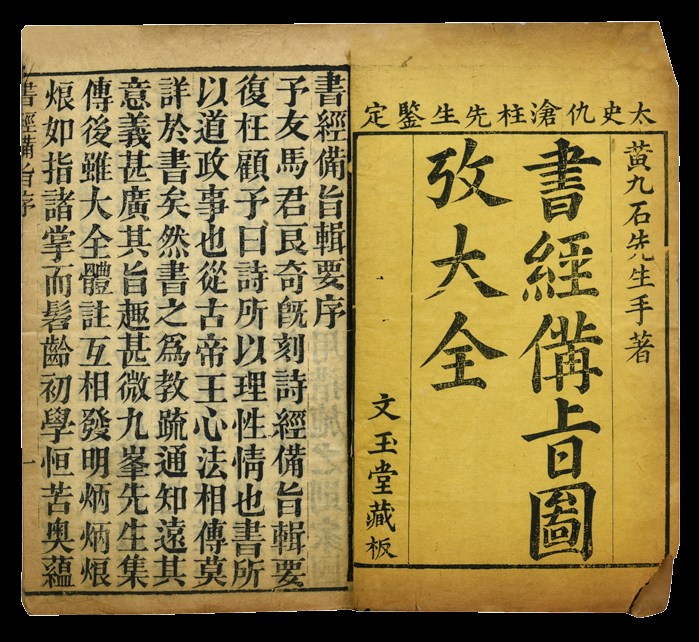 太史仇滄柱先生鑒定
黄九石先生手著
書經備旨圖
攷大全
文玉堂藏板
書經備旨輯要序
予友馬君良奇旣刻詩經備旨輯要
復枉顧予曰詩所以理性情也書所
以道政事也從古帝王心法相傳莫
詳於書矣然書之爲教疏通知遠其
意義甚廣其旨趣甚微九峯先生集
傳後雖大全體註互相發明炳炳烺
烺如指諸掌而髫齡初學恒苦奥蘊
書經備旨序
一